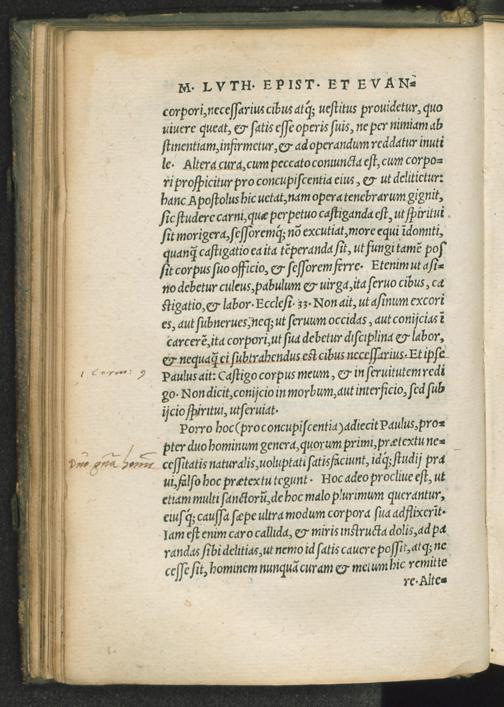 M. LVTH. EPIST. ET EVAN=
corpori, necessarius cibus atq; uestitus prouidetur, quo
uiuere queat, & satis esse operis suis, ne per nimiam ab
stinentiam, infirmetur, & ad operandum reddatur inuti
le. Altera cura, cum peccato coniuncta est, cum corpo=
ri prospicitur pro concupiscentia eius, & ut delitietur:
hanc Apostolus hic uetat, nam opera tenebrarum gignit,
sic studere carni, quæ perpetuo castiganda est, ut spiritui
sit morigera, sessoremq; nō excutiat, more equi īdomiti,
quanq̄ castigatio ea ita tēperanda sit, ut fungi tamē pos
sit corpus suo officio, & sessorem ferre. Etenim ut asi=
no debetur culeus, pabulum & uirga, ita seruo cibus, ca
stigatio, & labor. Ecclesi. 33. Non ait, ut asinum excori
es, aut subnerues, neq; ut seruum occidas, aut conijcias ī
carcerē, ita corpori, ut sua debetur disciplina & labor,
& nequaq̄ ei subtrahendus est cibus necessarius. Et ipse
Paulus ait: Castigo corpus meum, & in seruitutem redi
go. Non dicit, conijcio in morbum, aut interficio, sed sub
ijcio spiritui, ut seruiat.
1 Corin: 9
Porro hoc (pro concupiscentia) adiecit Paulus, pro=
pter duo hominum genera, quorum primi, prætextu ne=
cessitatis naturalis, uoluptati satisfaciunt, idq; studij pra
ui, falso hoc prætextu tegunt. Hoc adeo procliue est, ut
etiam multi sanctorū, de hoc malo plurimum querantur,
eiusq; caussa sæpe ultra modum corpora sua adflixerīt.
Iam est enim caro callida, & miris instructa dolis, ad pa
randas sibi delitias, ut nemo id satis cauere possit, atq; ne
cesse sit, hominem nunquā curam & metum hic remitte
re. Alte=
Duo gn̄a homin̄